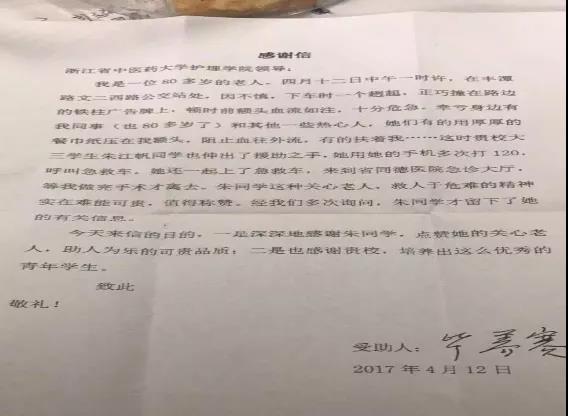 感谢信
浙江省中医药大学护理学院领导：
我是一位80多岁的老人，四月十二日中午一时许，在丰潭
路文二西路公交站处，因不慎，下车时一个趔趄，正巧撞在路边
的铁柱广告牌上，顿时前额头血流如注，十分危急。幸亏身边有
我同事（也80多岁了）和其他一些热心人，她们有的用厚厚的
餐巾纸压在我额头，阻止血往外流，有的扶着我……这时贵校大
三学生朱江帆同学也伸出了援助之手，她用她的手机多次打120，
呼叫急救车。她还一起上了急救车，来到省同德医院急诊大厅，
等我做完手术才离去。朱同学这种关心老人，救人于危难的精神
实在难能可贵，值得称赞。经我们多次询问，朱同学才留下了她
的有关信息。
今天来信的目的，一是深深地感谢朱同学，点赞她的关心老
人，助人为乐的可贵品质；二是也感谢贵校，培养出这么优秀的
青年学生。
致此
敬礼！
受助人：
2017年4月12日